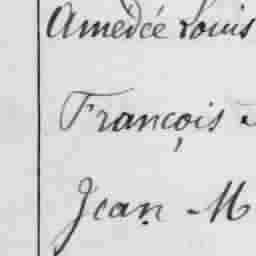 Amédée Louis
François
Jean M